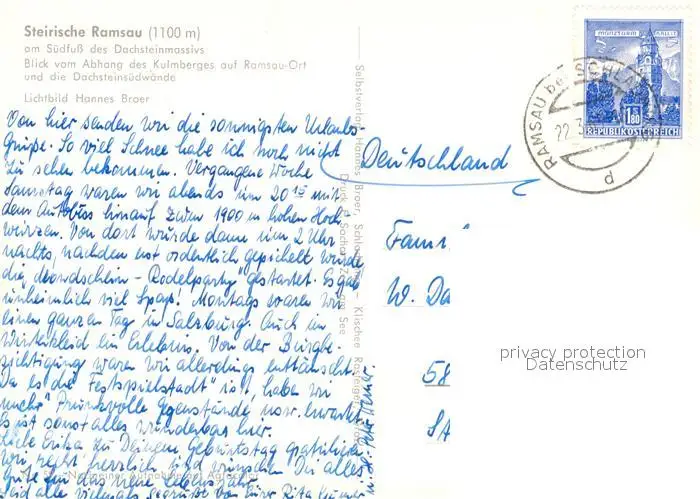 Steirische Ramsau (1100 m)
am Südfuß des Dachsteinmassivs
Blick vom Abhang des Kulmberges auf Ramsau-Ort
und die Dachsteinsüdwände
Lichtbild Hannes Broer
Von hier senden wir die sonnigsten Urlaubs-
grüße. So viel Schnee habe ich noch nicht
zu sehen bekommen. Vergangene Woche
Samstag waren wir abends um 20 15 mit
dem Autobus hinauf zum 1900 m hohen Hoch-
wurzen. Von dort wurde dann um 2 Uhr
nachts, nachdem erst ordentlich gepichelt wurde
die "Mondschein-Rodelparty" gestartet. Es gab
unheimlich viel Spaß! Montags waren wir
einen ganzen Tag in Salzburg. Auch im
Winterkleid ein Erlebnis. Von der Burgbe-
sichtigung waren wir allerdings enttäuscht.
Da es die "Festspielstadt" ist, haben wir
mehr Prunkvolle Gegenstände usw. erwartet.
Es ist sonst alles wunderbar hier.
Liebe Erika zu Deinem Geburtstag gratulieren
wir recht herzlich und wünschen Dir alles
Gute für das neue Lebensjahr.
Seid alle vielmals gegrüßt von Eurer Rita
Selbstverlag Hannes Broer, Schladming – Klischee
Deutschland
Fam
W. Da
58
MÜNZTURM HALL I. T.
1.80
REPUBLIK ÖSTERREICH
RAMSAU bei SCHLA
22.3
d
privacy protection
Datenschutz